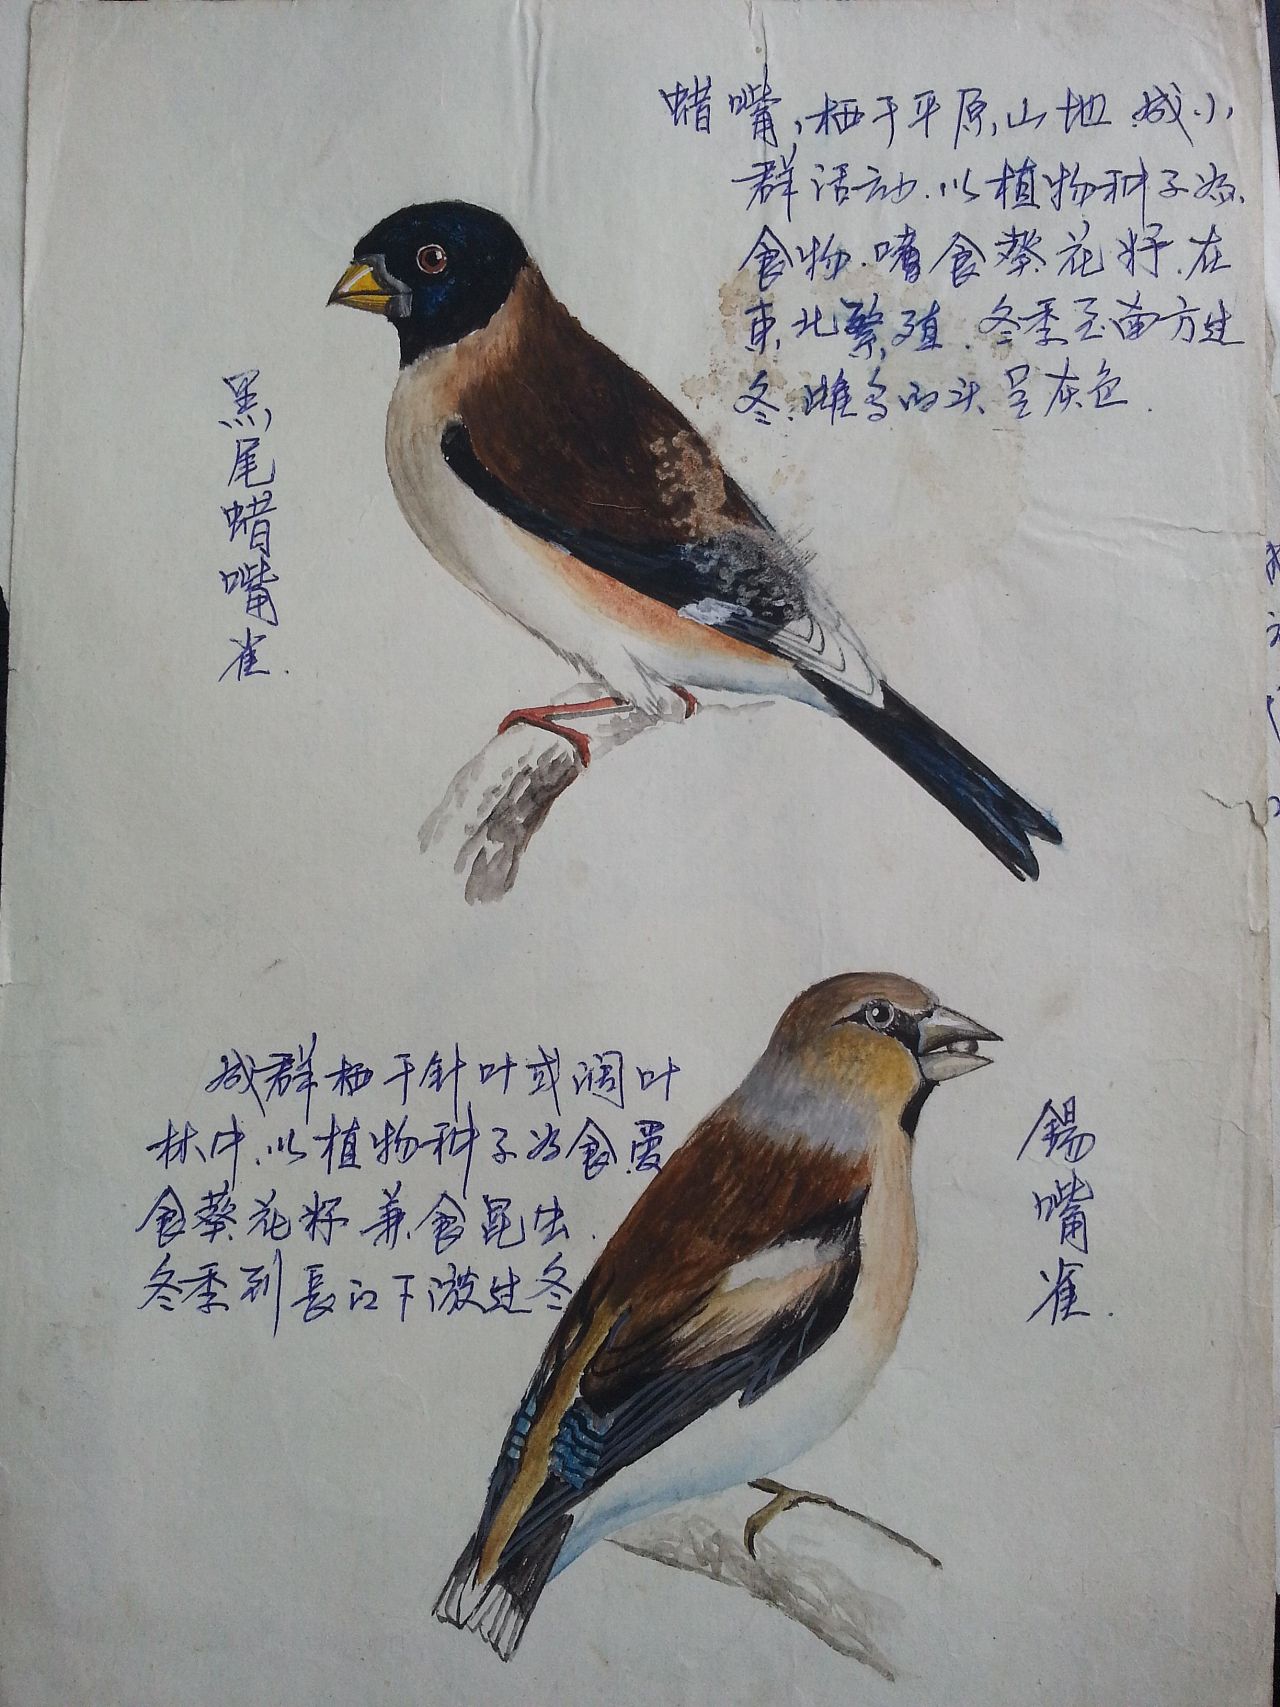 蜡嘴,栖于平原,山地.成小
群活动.以植物种子为
食物.嗜食葵花籽.在
東北繁殖.冬季至南方过
冬.雌鸟的头呈灰色.
黑尾蜡嘴雀.
成群栖于针叶或阔叶
林中.以植物种子为食.爱
食葵花籽.兼食昆虫.
冬季到長江下游过冬
錫嘴雀.